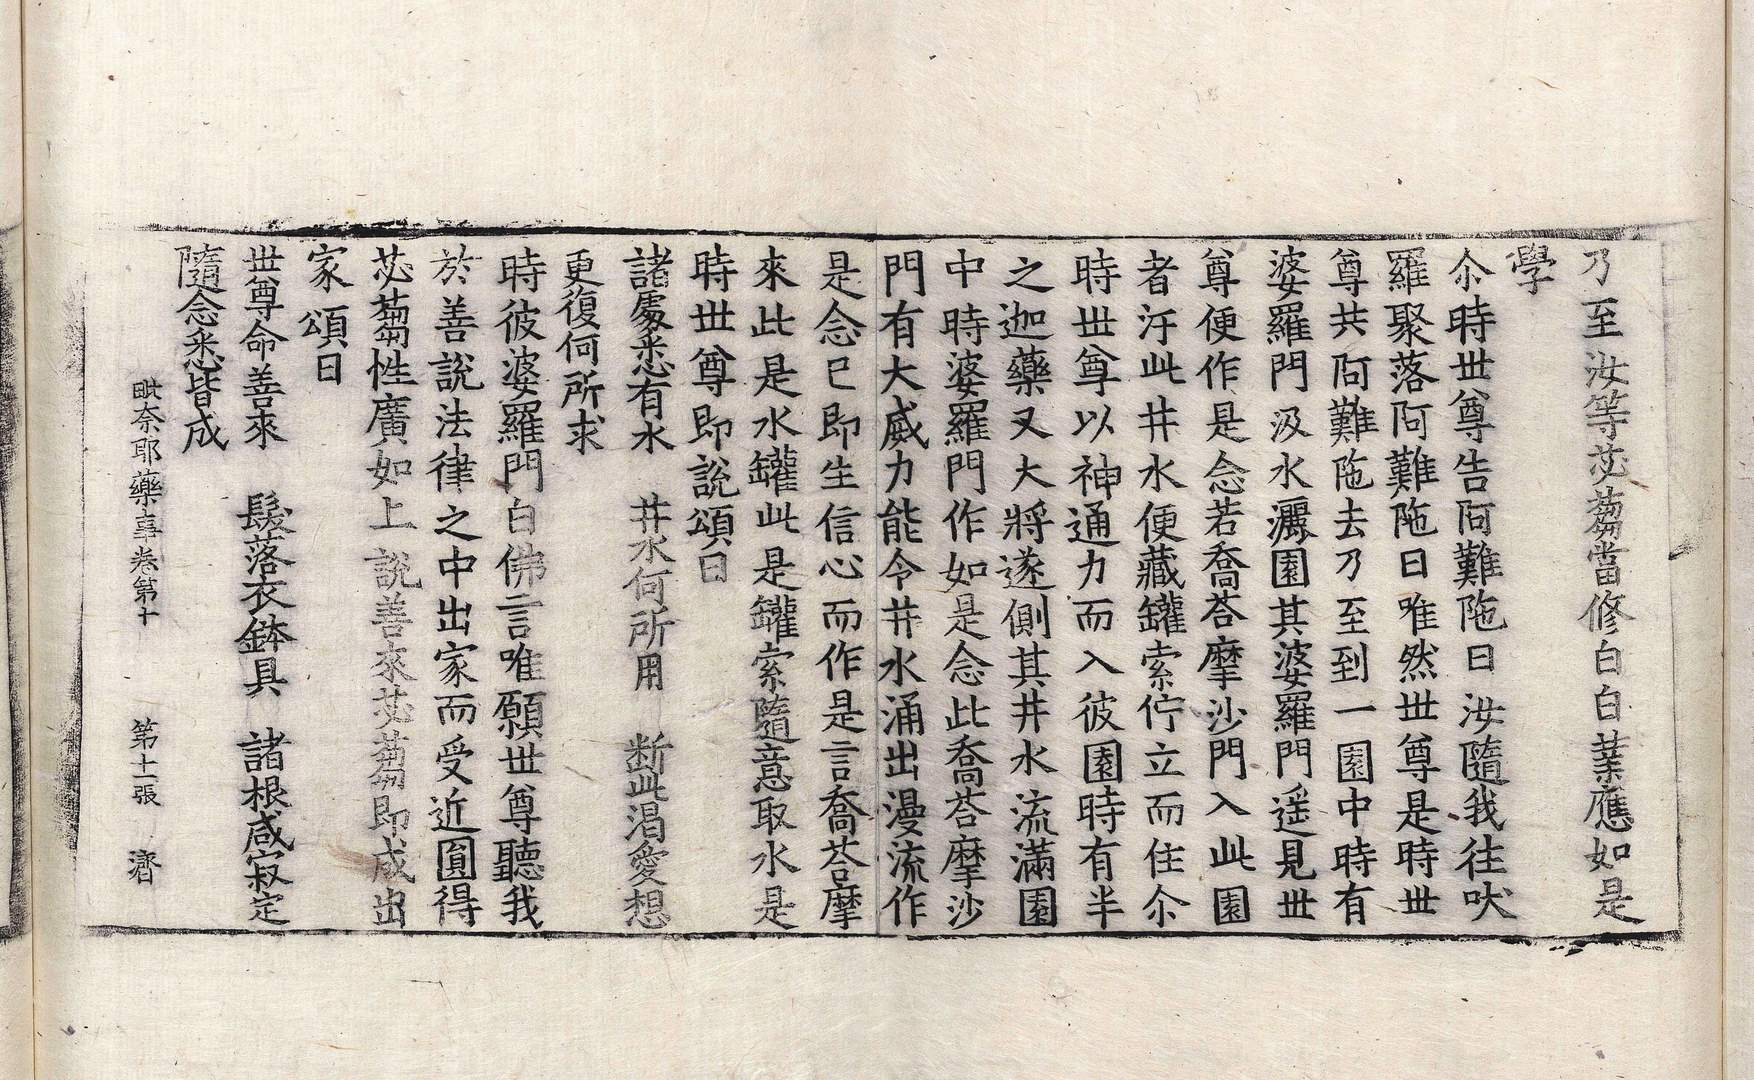 乃至汝等苾蒭當修白白業應如是
學
尒時世尊告阿難陁曰汝隨我往吠
羅聚落阿難陁曰唯然世尊是時世
尊共阿難陁去乃至到一園中時有
婆羅門汲水灑園其婆羅門遥見世
尊便作是念若喬荅摩沙門入此園
者汙此井水便藏罐索佇立而住尒
時世尊以神通力而入彼園時有半
之迦藥叉大將遂側其井水流滿園
中時婆羅門作如是念此喬荅摩沙
門有大威力能令井水涌出漫流作
是念已即生信心而作是言喬荅摩
來此是水罐此是罐索隨意取水是
時世尊即說頌曰
諸處悉有水　井水何所用　断此渴愛想
更復何所求
時彼婆羅門白佛言唯願世尊聽我
於善說法律之中出家而受近圓得
苾蒭性廣如上說善來苾蒭即成出
家頌曰
世尊命善來　髮落衣鉢具　諸根咸寂定
隨念悉皆成
毗奈耶藥事卷第十　第十一張　濟